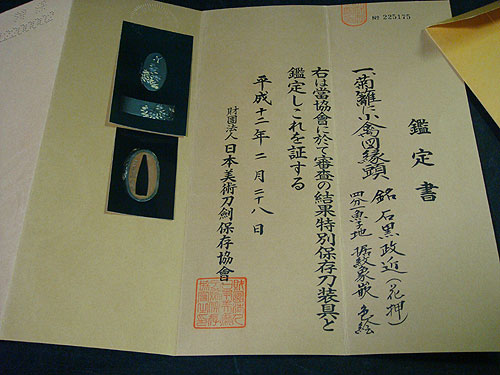 № 225175
鑑定書
一、菊籬に小禽図縁頭
銘 石黒政近(花押)
四分一魚子地 据紋象嵌 色絵
右は當協會に於て審査の結果特別保存刀装具と
鑑定しこれを証する
平成十二年二月二十八日
財團法人 日本美術刀劍保存協會